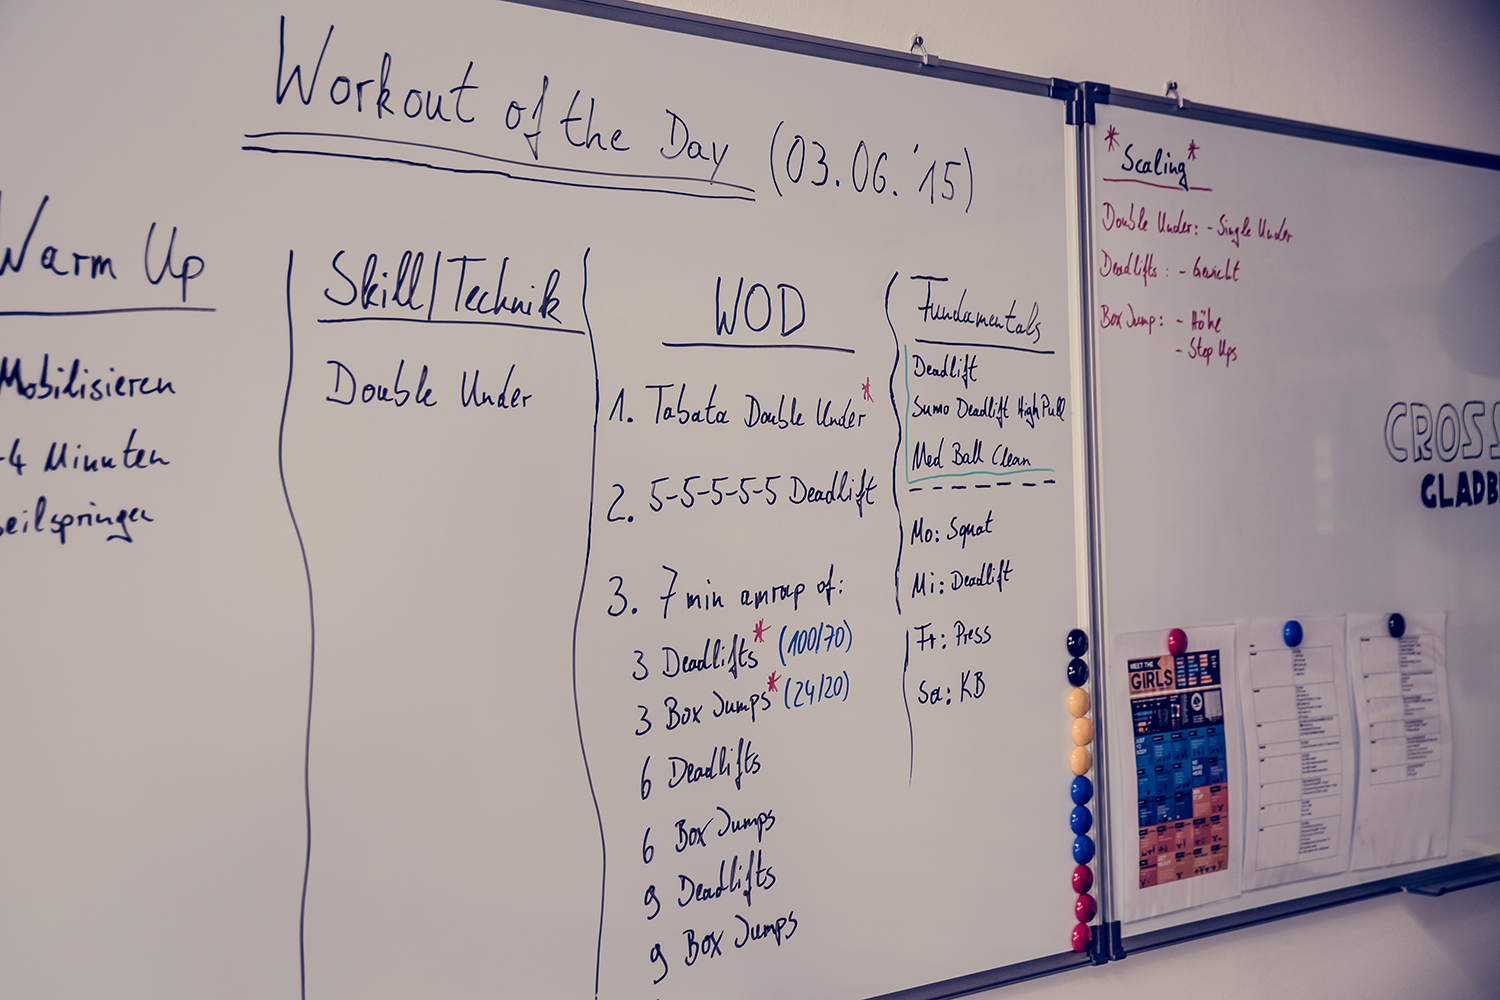 Workout of the Day (03.06.'15)
Warm Up
Mobilisieren
-4 Minuten
eilspringen
Skill/Technik
Double Under
WOD
1. Tabata Double Under*
2. 5-5-5-5-5 Deadlift
3. 7 min amrap of:
3 Deadlifts* (100/70)
3 Box Jumps* (24/20)
6 Deadlifts
6 Box Jumps
9 Deadlifts
9 Box Jumps
Fundamentals
Deadlift
Sumo Deadlift High Pull
Med Ball Clean
Mo: Squat
Mi: Deadlift
Fr: Press
Sa: KB
*Scaling*
Double Under: - Single Under
Deadlifts: - Gewicht
Box Jump: - Höhe
- Step Ups
CROSS
GLADB
MEET THE
GIRLS